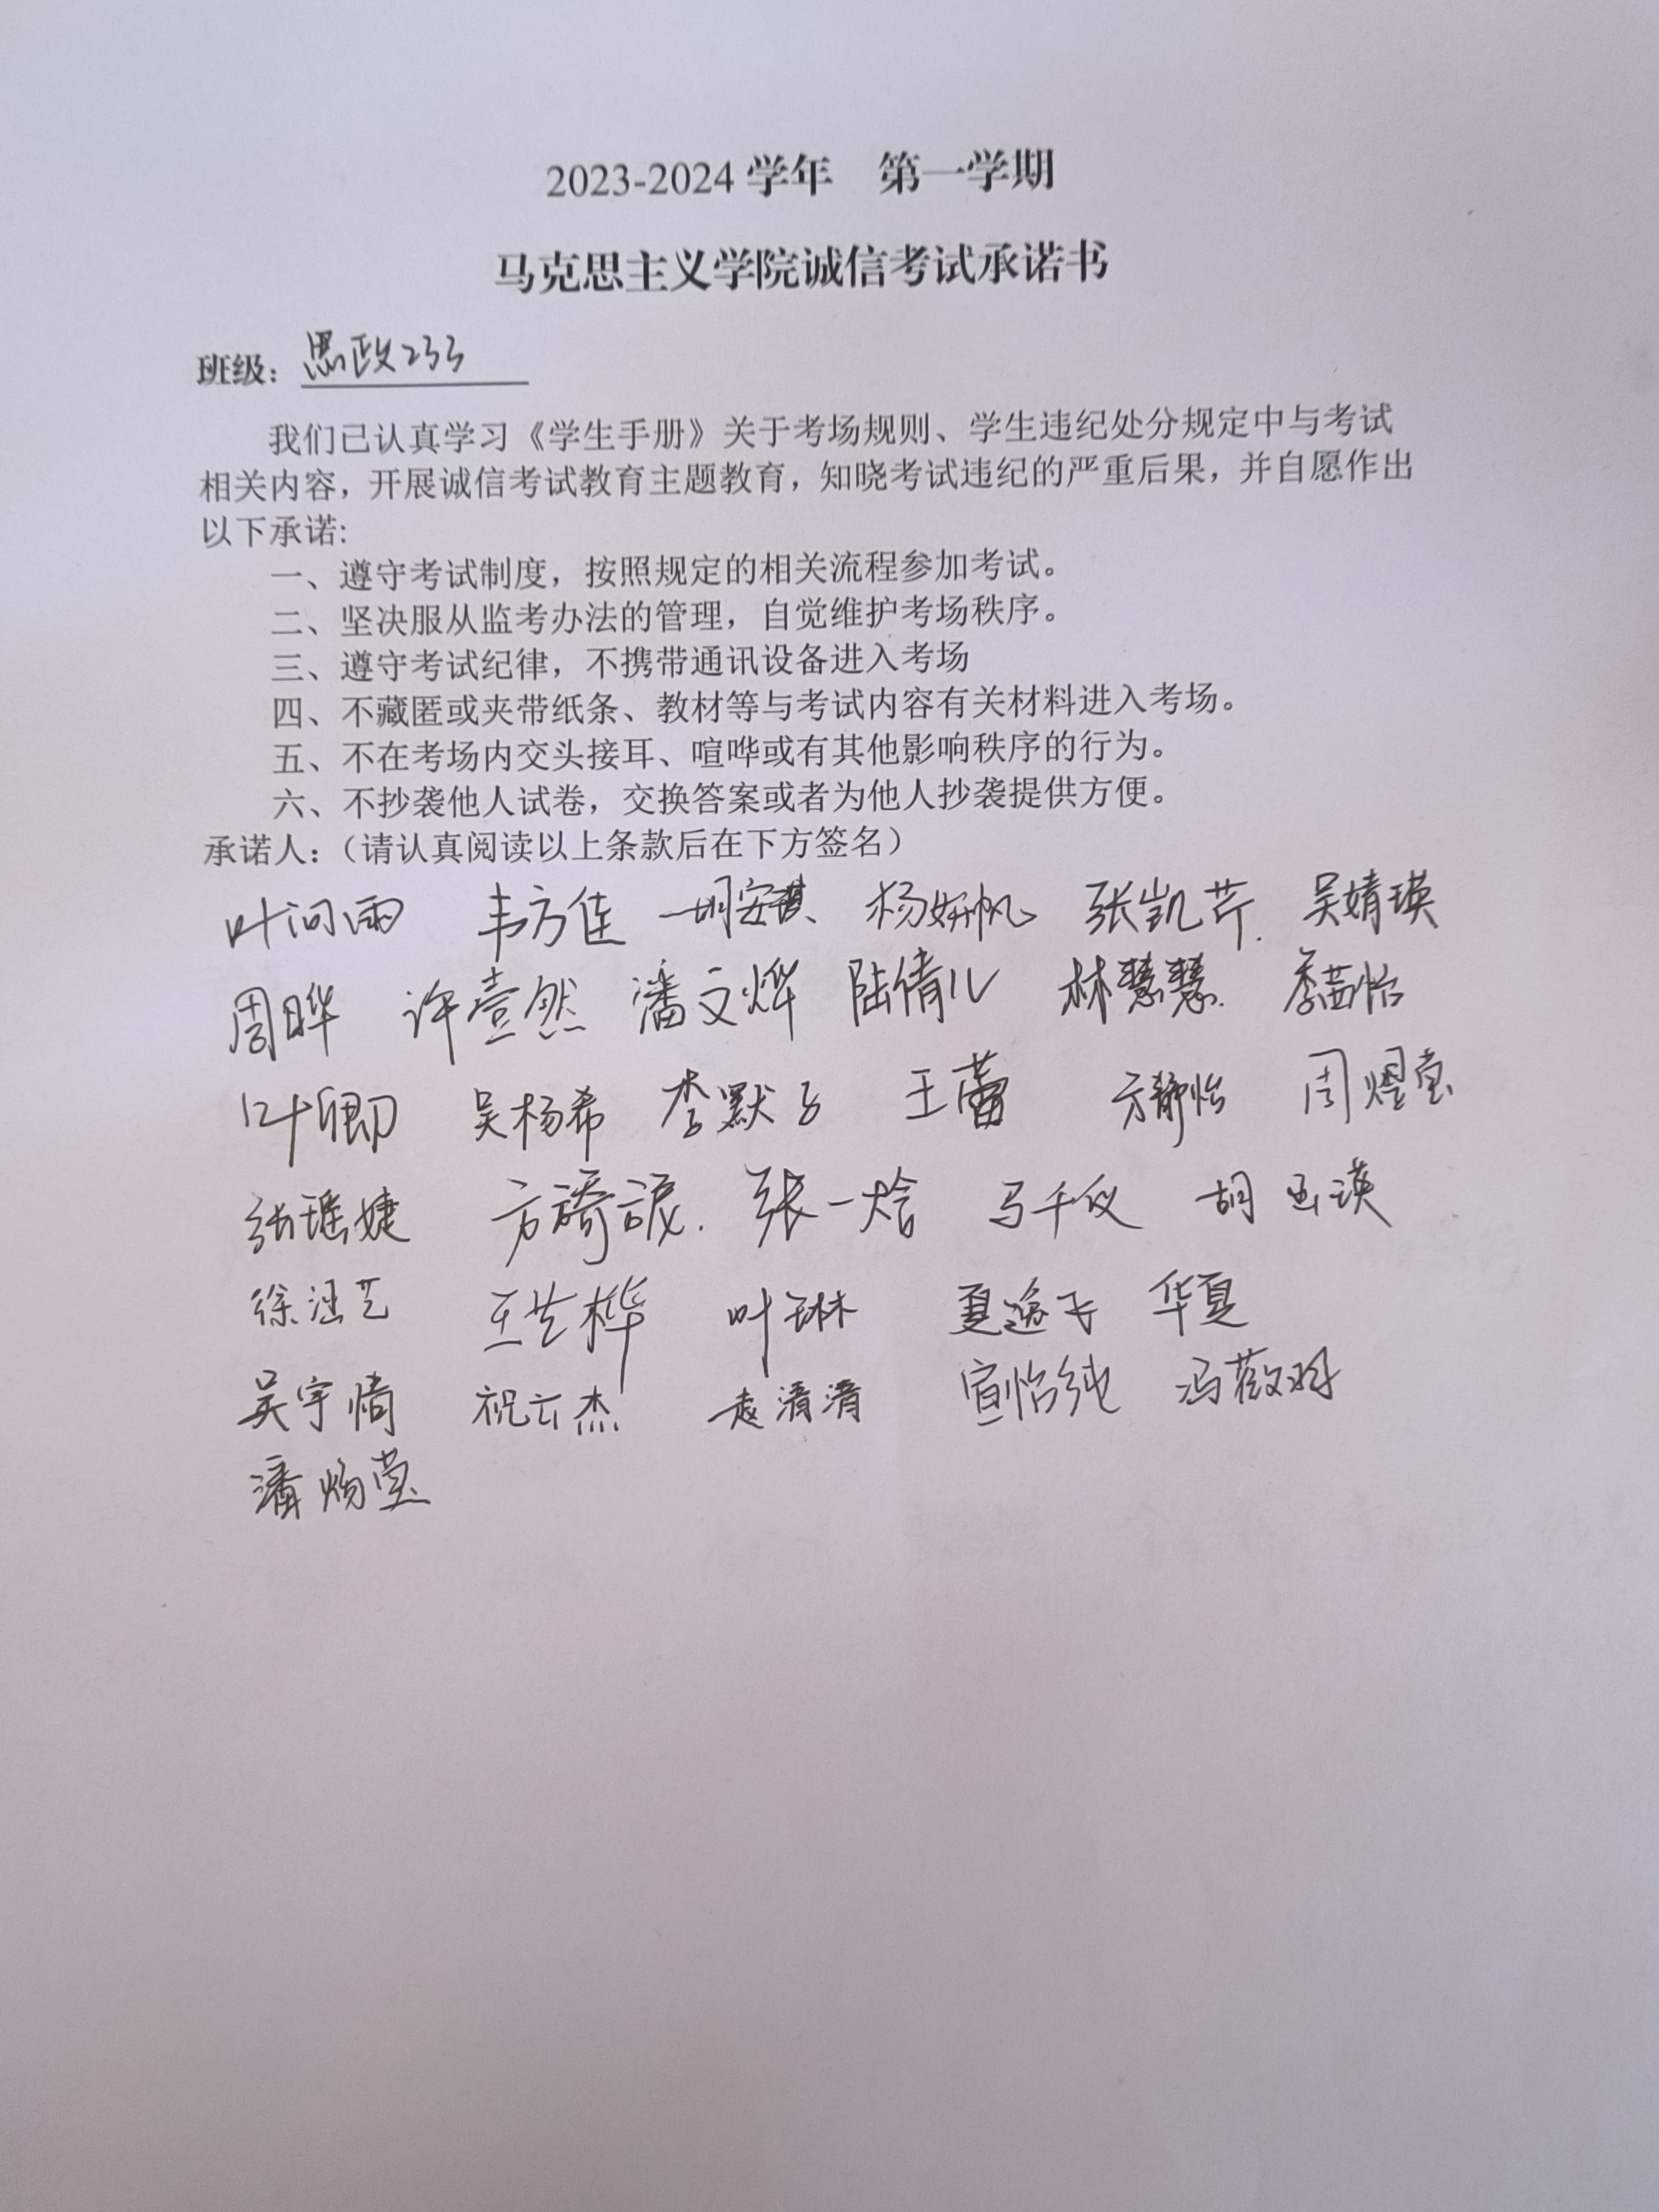 2023-2024 学年 第一学期
马克思主义学院诚信考试承诺书
班级：思政233
我们已认真学习《学生手册》关于考场规则、学生违纪处分规定中与考试
相关内容，开展诚信考试教育主题教育，知晓考试违纪的严重后果，并自愿作出
以下承诺:
一、遵守考试制度，按照规定的相关流程参加考试。
二、坚决服从监考办法的管理，自觉维护考场秩序。
三、遵守考试纪律，不携带通讯设备进入考场
四、不藏匿或夹带纸条、教材等与考试内容有关材料进入考场。
五、不在考场内交头接耳、喧哗或有其他影响秩序的行为。
六、不抄袭他人试卷，交换答案或者为他人抄袭提供方便。
承诺人：（请认真阅读以上条款后在下方签名）
叶问雨 韦方佳 胡安琪 杨妍帆 张凯芹 吴婧瑛
周晔 许壹然 潘文烨 陆倩儿 林慧慧 季茜怡
叶卿 吴杨希 李默子 王蕾 方静怡 周煜莹
张瑶婕 张一烩 马千仪
徐涵艺 王艺桦 叶琳 夏逸飞 华夏
吴宇倩 祝云杰 袁清清 宣怡纯 冯薇羽
潘炀莹